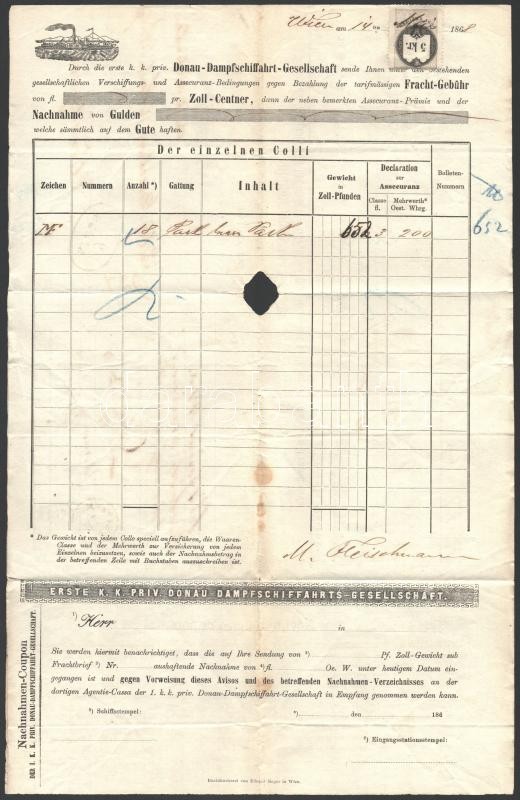 Wien am 14 en 1868
5 kr.
Durch die erste k. k. priv. Donau-Dampfschiffahrt-Gesellschaft sende Ihnen unter den bestehenden
gesellschaftlichen Verschiffungs- und Assecuranz-Bedingungen gegen Bezahlung der tarifmässigen Fracht-Gebühr
von fl. pr. Zoll-Centner, dann der neben bemerkten Assecuranz-Prämie und der
Nachnahme von Gulden
welche sämmtlich auf dem Gute haften.
Der einzelnen Colli
Zeichen Nummern Anzahl *) Gattung Inhalt Gewicht in Zoll-Pfunden Declaration zur Assecuranz Classe fl. Mehrwerth* Oest. Whrg. Bolleten-Nummern
18 652 3 200 652
* Das Gewicht ist von jedem Collo speciell aufzuführen, die Waaren-
Classe und der Mehrwerth zur Versicherung von jedem
Einzelnen beizusetzen, sowie auch der Nachnahmsbetrag in
der betreffenden Zeile mit Buchstaben auszuschreiben ist.
M. Fleischmann
ERSTE K. K. PRIV. DONAU DAMPFSCHIFFAHRTS-GESELLSCHAFT.
Nachnahmen-Coupon
DER I. K. K. PRIV. DONAU-DAMPFSCHIFFAHRT-GESELLSCHAFT.
¹) Herr in
Sie werden hiermit benachrichtiget, dass die auf Ihre Sendung von ²) Pf. Zoll-Gewicht sub
Frachtbrief ³) Nr. aushaftende Nachnahme von ⁴) fl. Oe. W. unter heutigem Datum ein-
gegangen ist und gegen Vorweisung dieses Avisos und des betreffenden Nachnahmen-Verzeichnisses an der
dortigen Agentie-Cassa der I. k. k. priv. Donau-Dampfschiffahrt-Gesellschaft in Empfang genommen werden kann.
⁵) Schiffsstempel: ⁶) den 186
⁶) Eingangsstationsstempel: